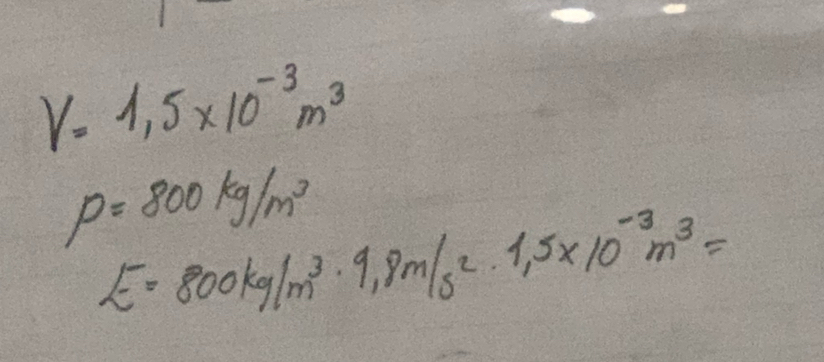 V= 1,5x10⁻³ m³
ρ= 800 kg/m³
E= 800kg/m³ · 9,8m/s² · 1,5x10⁻³ m³ =